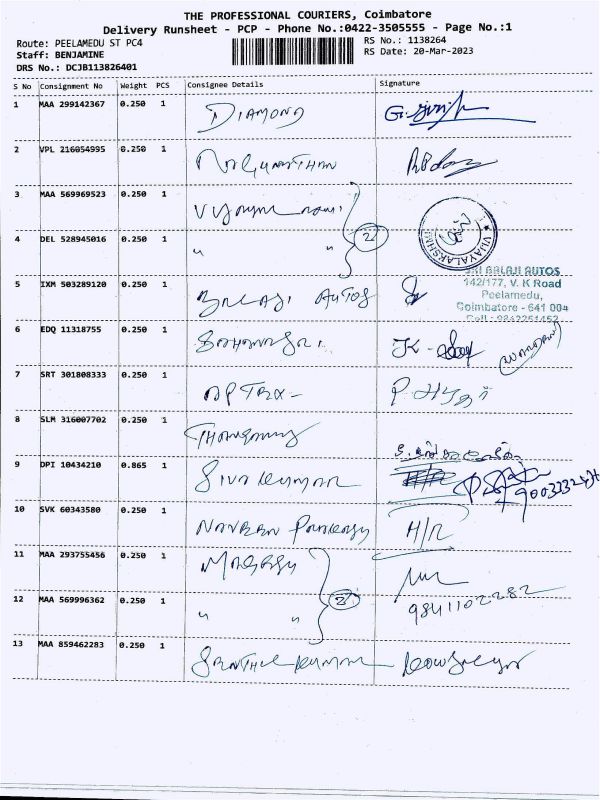 THE PROFESSIONAL COURIERS, Coimbatore
Delivery Runsheet - PCP - Phone No.:0422-3505555 - Page No.:1
Route: PEELAMEDU ST PC4
RS No.: 1138264
Staff: BENJAMINE
RS Date: 20-Mar-2023
DRS No.: DCJB113826401
S No Consignment No Weight PCS Consignee Details Signature
1 MAA 299142367 0.250 1 DIAMOND
2 VPL 216054995 0.250 1
3 MAA 569969523 0.250 1
4 DEL 528945016 0.250 1 " " 2
VIJAYALAKSHMI
5 IXM 503289120 0.250 1 BALAJI AUTOS
SRI BALAJI AUTOS
142/177, V. K Road
Peelamedu,
Coimbatore - 641 004
Cell : 9842251452
6 EDQ 11318755 0.250 1
7 SRT 301808333 0.250 1 APTRA -
8 SLM 316007702 0.250 1
9 DPI 10434210 0.865 1 SIVA KUMAR
10 SVK 60343580 0.250 1 NAVEEN PRAKASH H/R
11 MAA 293755456 0.250 1 MAGESH
12 MAA 569996362 0.250 1 " " 2 9841102282
13 MAA 859462283 0.250 1 SENTHIL KUMAR